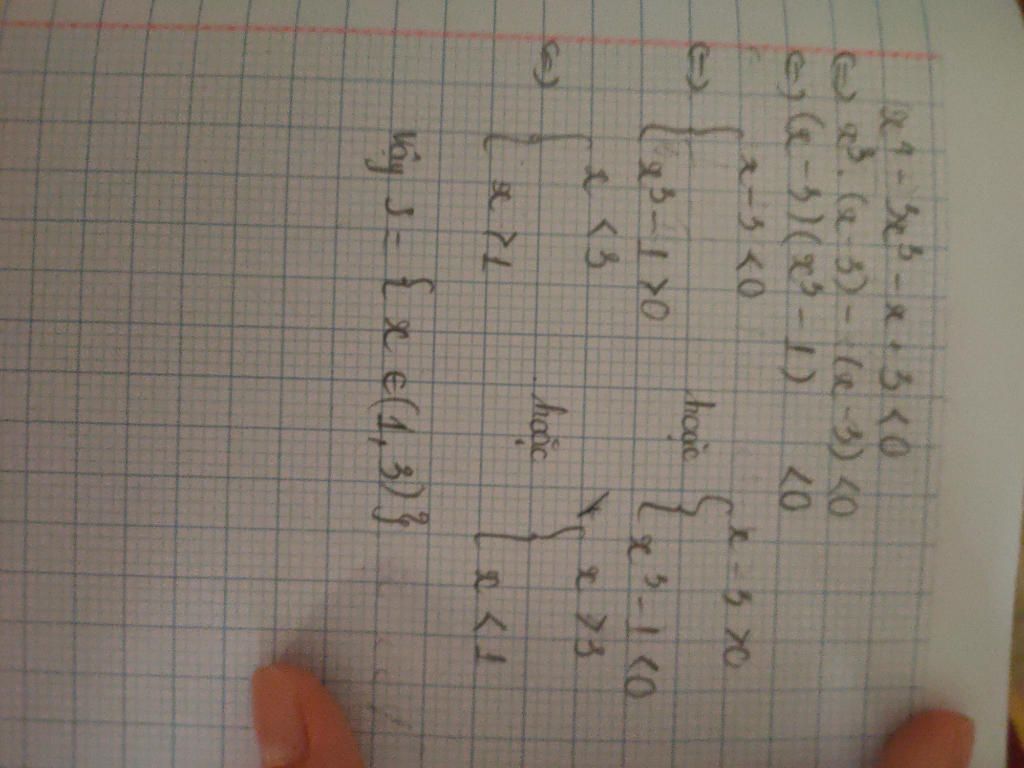 x⁴ - 3x³ - x + 3 < 0
(=) x³.(x-3) - (x-3) < 0
(=) (x-3)(x³-1) < 0
(=) { x-3 < 0 hoặc { x-3 > 0
{ x³-1 > 0 { x³-1 < 0
(=) { x < 3 hoặc { x > 3
{ x > 1 { x < 1
Vậy S = { x ∈ (1,3) }